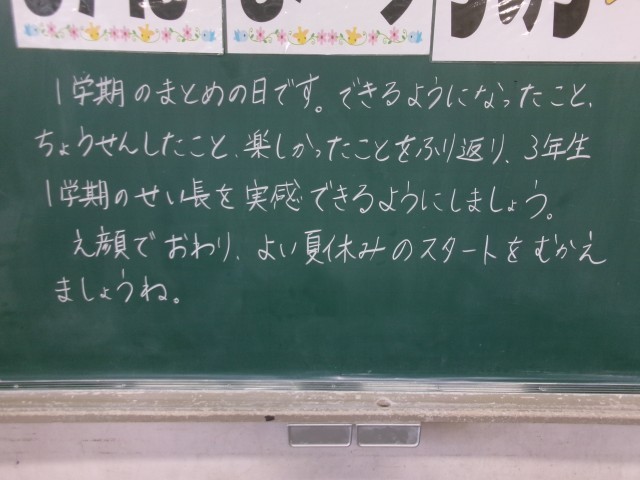 1学期のまとめの日です。できるようになったこと、
ちょうせんしたこと、楽しかったことをふり返り、3年生
1学期のせい長を実感できるようにしましょう。
え顔でおわり、よい夏休みのスタートをむかえ
ましょうね。